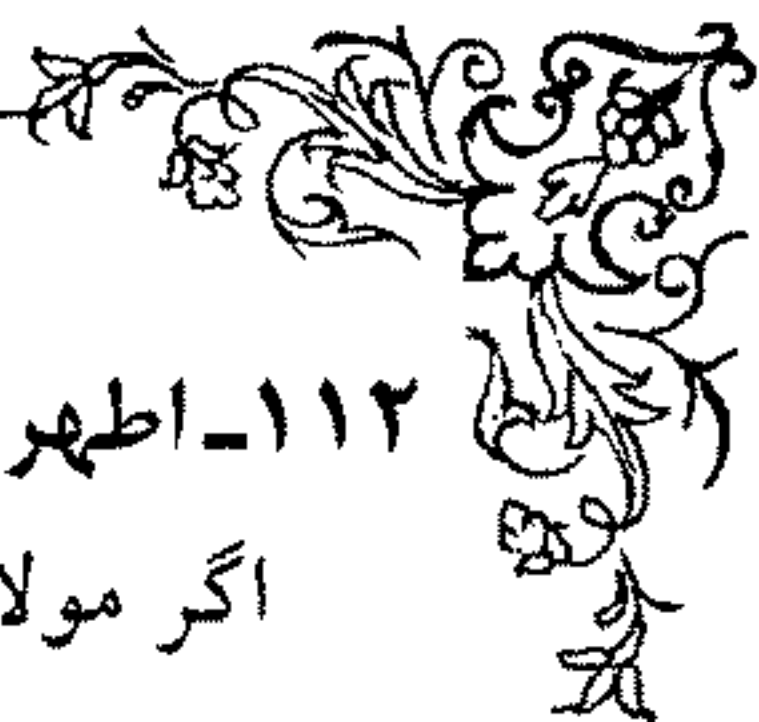 ۱۱۲ـ اطهر
اگر مولا